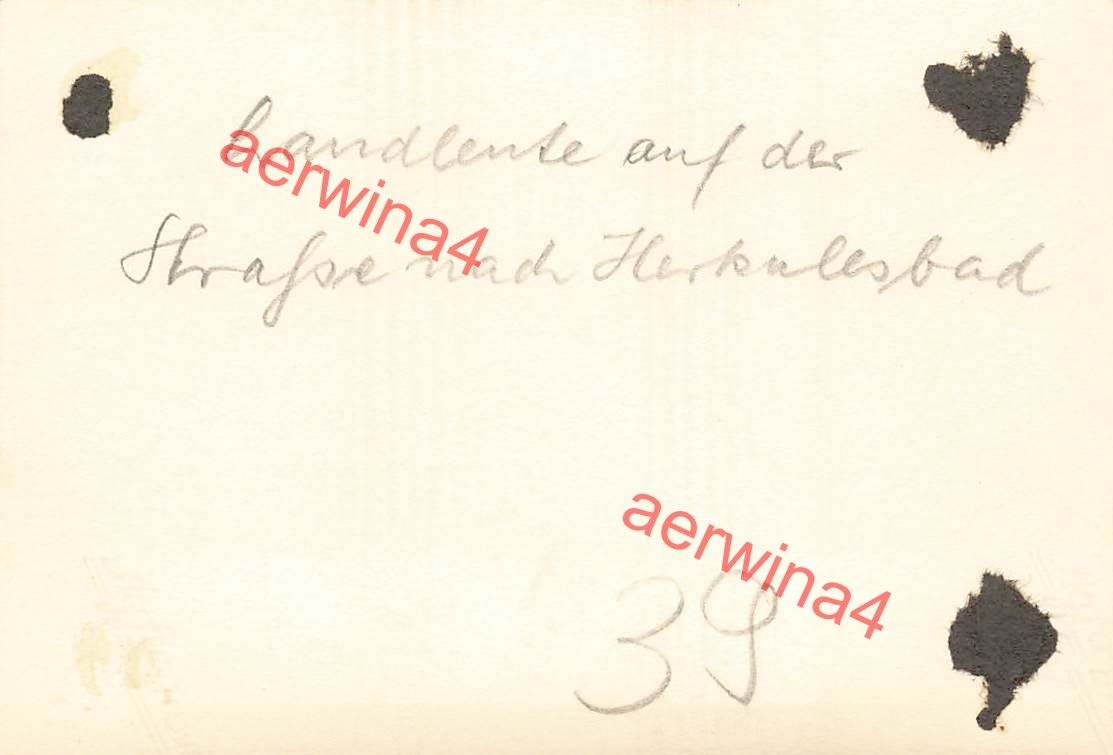 Landleute auf der
Straße nach Herkulesbad
aerwina4
aerwina4
39